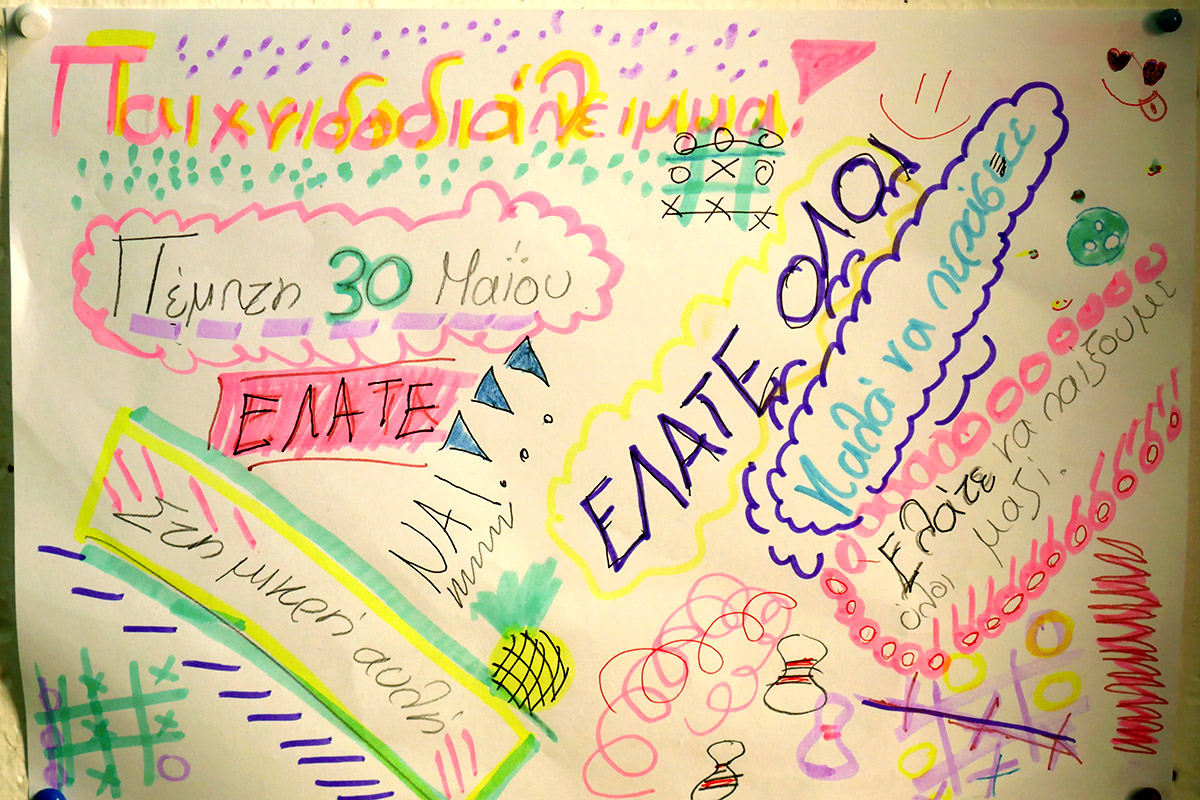 Παιχνιδοδιάλειμμα!
Πέμπτη 30 Μαΐου
ΕΛΑΤΕ
ΝΑΙ!
Στη μικρή αυλή
ΕΛΑΤΕ ΟΛΟΙ
Καλά να περάσετε
!!!
Ελάτε να παίξουμε
όλοι μαζί.